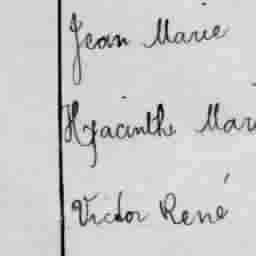 Jean Marie
Hyacinthe Mari
Victor René